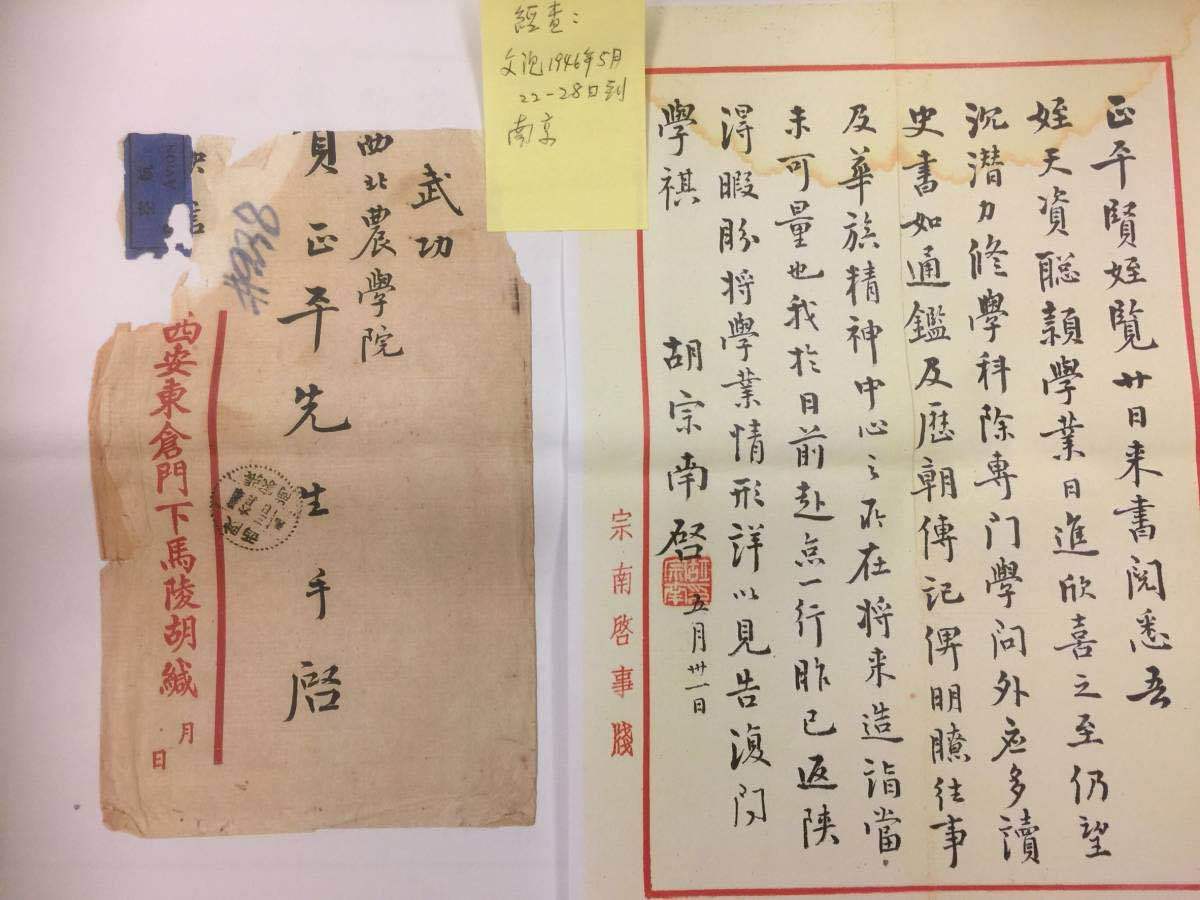 經查：
文說1946年5月
22-28日到
南京
正平賢姪覽廿日来書閱悉吾
姪天資聪頴學業日進欣喜之至仍望
沉潜力修學科除專门學问外应多讀
史書如通鑑及歷朝傳记俾明瞭往事
及華族精神中心之所在将来造詣當
未可量也我於日前赴京一行昨已返陕
得暇盼将學業情形詳以見告復问
學祺
胡宗南啓
五月卅一日
宗南啓事牋
武功
西北農學院
賀正平先生手啓
AVION
#9238
西安東倉門下馬陵胡緘
月
日